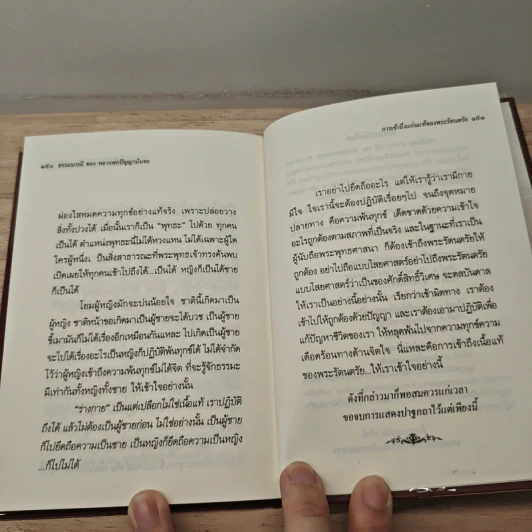 ๑๕๐ ธรรมบารมี ของ หลวงพ่อปัญญานันทะ
ผ่องใสหมดความทุกข์อย่างแท้จริง เพราะปล่อยวาง
สิ่งทั้งปวงได้ เมื่อนั้นเราก็เป็น "พุทธะ" ไปด้วย ทุกคน
เป็นได้ ตำแหน่งพุทธะนี่ไม่ได้หวงแหน ไม่ได้เฉพาะผู้ใด
ใครผู้หนึ่ง เป็นสิ่งสาธารณะที่พระพุทธเจ้าทรงค้นพบ
เปิดเผยให้ทุกคนเข้าไปถึงได้...เป็นได้ หญิงก็เป็นได้ชาย
ก็เป็นได้
โยมผู้หญิงมักจะบ่นน้อยใจ ชาตินี้เกิดมาเป็น
ผู้หญิง ชาติหน้าขอเกิดมาเป็นผู้ชายจะได้บวช เป็นผู้ชาย
ขี้เมามันก็ไม่ได้เรื่องอีกเหมือนกันแหละ ไปเกิดเป็นผู้ชาย
จะไปได้เรื่องอะไรเป็นหญิงก็ปฏิบัติพ้นทุกข์ได้ ไม่ได้จำกัด
ไว้ว่าผู้หญิงเข้าถึงความพ้นทุกข์ไม่ได้จิต ที่จะรู้จักธรรมะ
มีเท่ากันทั้งหญิงทั้งชาย ให้เข้าใจอย่างนั้น
"ร่างกาย" เป็นแต่เปลือกไม่ใช่เนื้อแท้ เราปฏิบัติ
ถึงได้ แล้วไม่ต้องเป็นผู้ชายก่อน ไม่ใช่อย่างนั้น เป็นผู้ชาย
ก็ไปยึดถือความเป็นชาย เป็นหญิงก็ยึดถือความเป็นหญิง
...ก็ไปไม่ได้
การเข้าถึงแก่นแท้ของพระรัตนตรัย ๑๕๑
เราอย่าไปยึดถืออะไร แต่ให้เรารู้ว่าเรามีกาย
มีใจ ใจเรานี้จะต้องปฏิบัติเรื่อยๆไป จนถึงจุดหมาย
ปลายทาง คือความพ้นทุกข์ เด็ดขาดด้วยความเข้าใจ
อะไรถูกต้องตามสภาพที่เป็นจริง และในฐานะที่เราเป็น
ผู้นับถือพระพุทธศาสนา ก็ต้องเข้าถึงพระรัตนตรัยให้
ถูกต้อง อย่าไปถือแบบไสยศาสตร์อย่าไปถึงพระรัตนตรัย
แบบไสยศาสตร์ว่าเป็นของศักดิ์สิทธิ์วิเศษ จะดลบันดาล
ให้เราเป็นอย่างนี้อย่างนั้น เรียกว่าเข้าผิดทาง เราต้อง
เข้าไปให้ถูกต้องด้วยปัญญา และเราต้องเอามาปฏิบัติเพื่อ
แก้ปัญหาชีวิตของเรา ให้หลุดพ้นไปจากความทุกข์ความ
เดือดร้อนทางด้านจิตใจ นี่แหละคือการเข้าถึงเนื้อแท้
ของพระรัตนตรัย...ให้เราเข้าใจอย่างนี้
ดังที่กล่าวมาก็พอสมควรแก่เวลา
ขอจบการแสดงปาฐกถาไว้แต่เพียงนี้